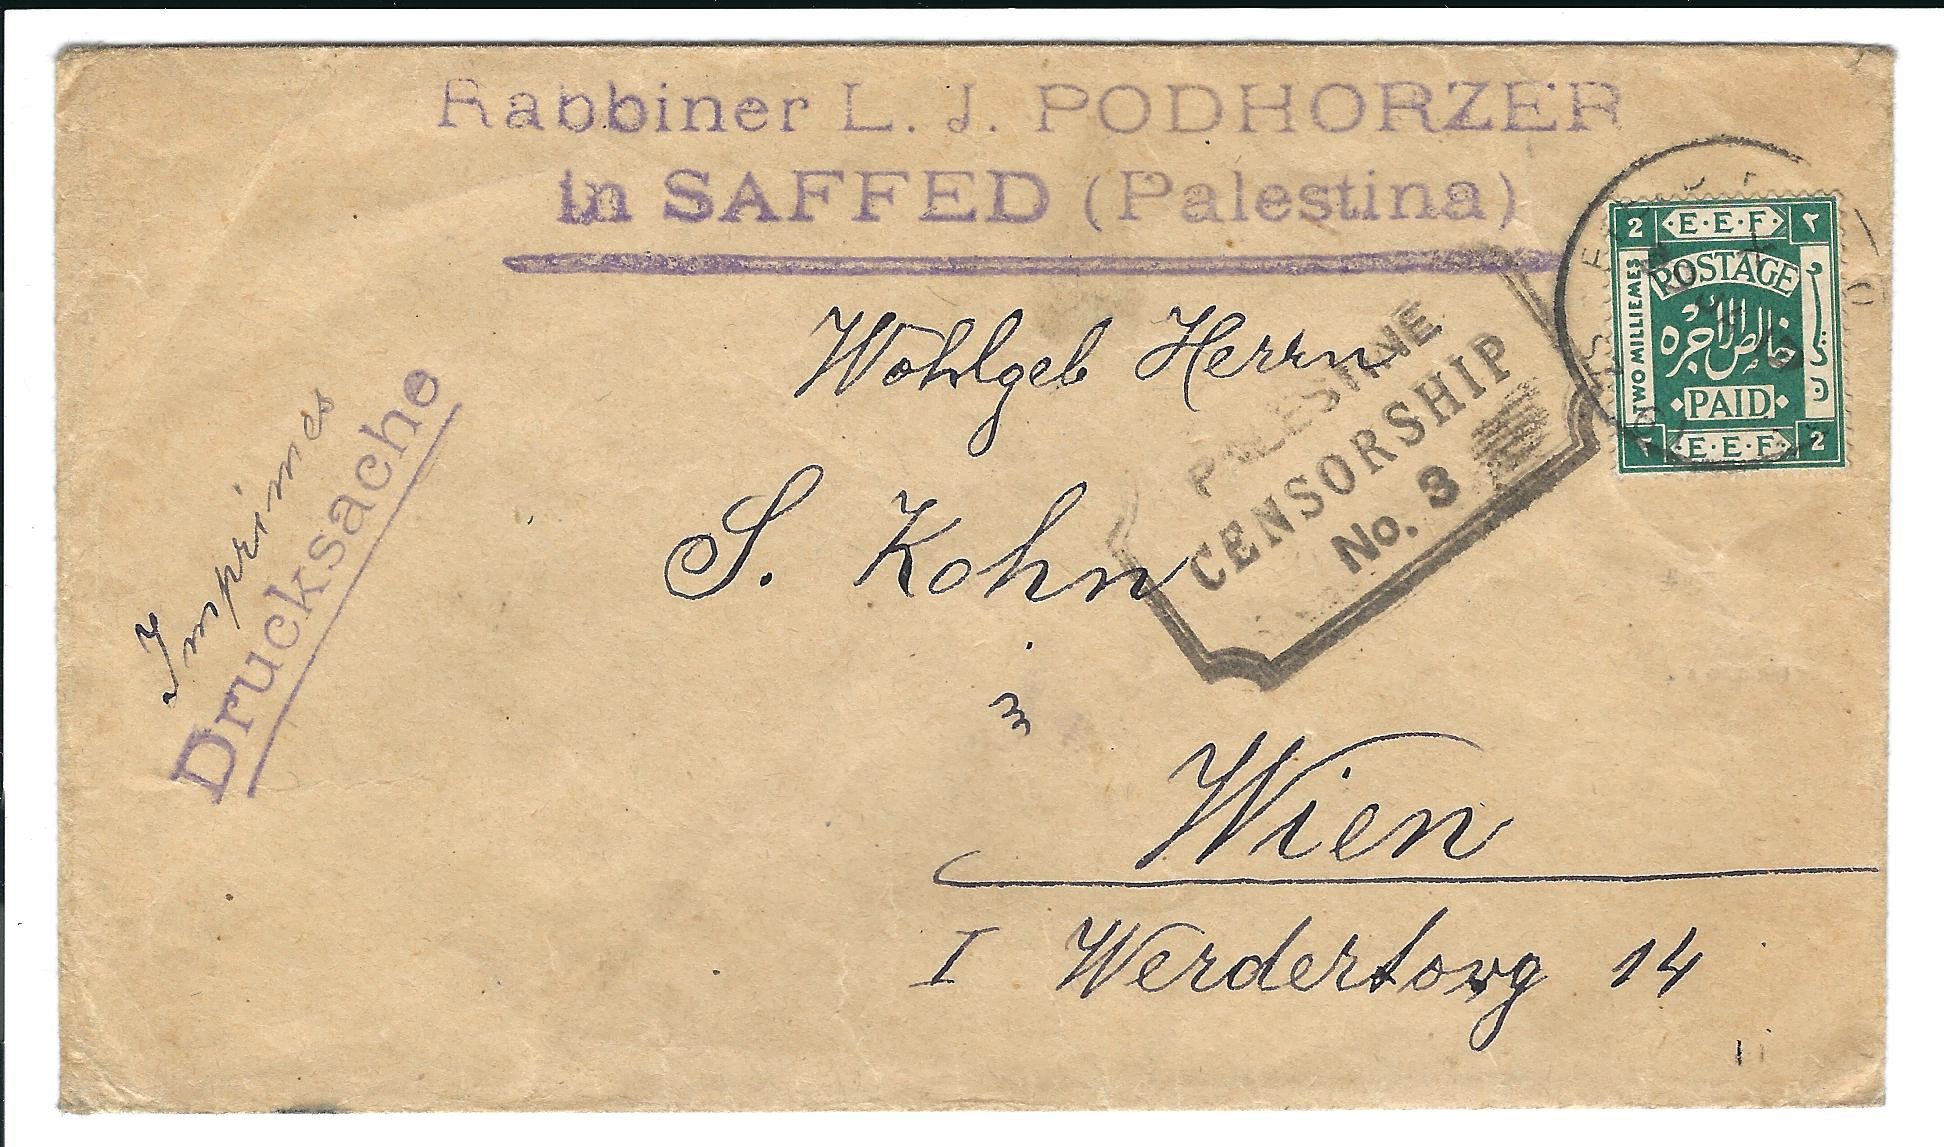 Rabbiner L. J. PODHORZER
in SAFFED (Palestina)
2 E·E·F ٢
POSTAGE
TWO MILLIEMES
خالص الاجرة
PAID
٢ E·E·F 2
PALESTINE
CENSORSHIP
No. 3
Imprimes
Drucksache
Wohlgeb Herrn
S. Kohn
Wien
I Werdertorg 14